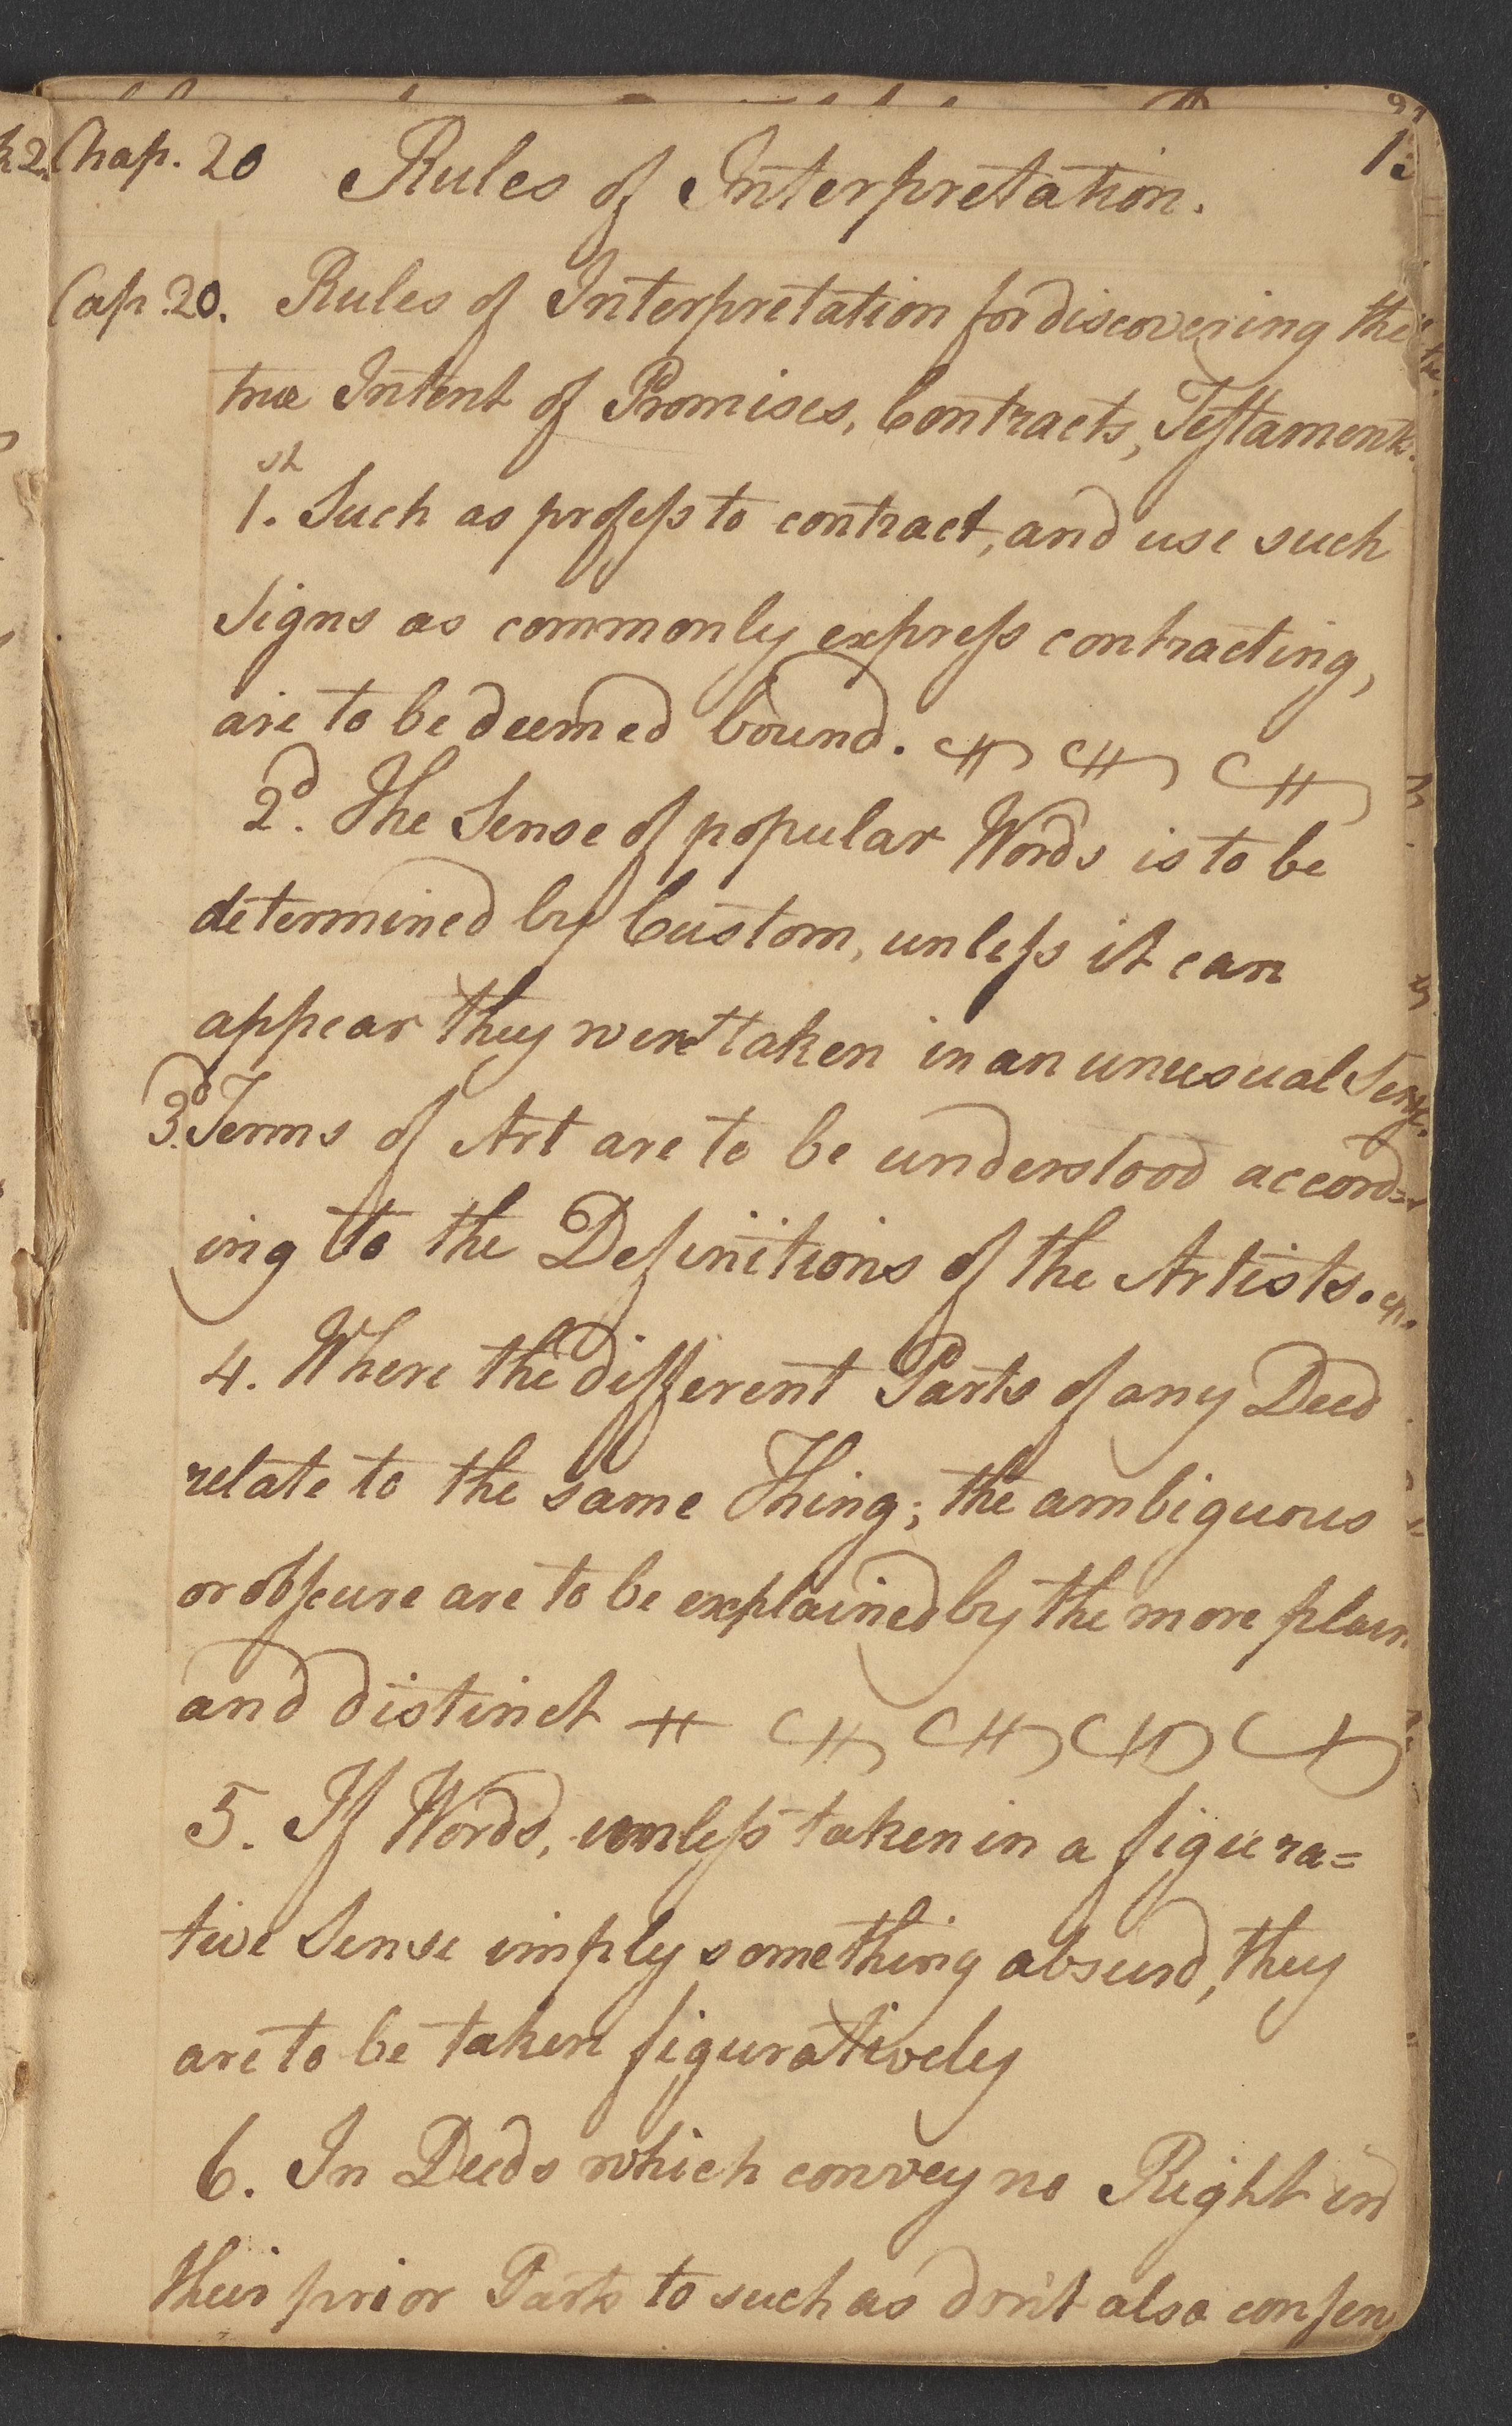 Chap. 20 Rules of Interpretation.
Cap. 20. Rules of Interpretation for discovering the
true Intent of Promises, Contracts, Testaments.
1.st Such as profess to contract, and use such
Signs as commonly express contracting,
are to be deemed bound.
2.d The Sense of popular Words is to be
determined by Custom, unless it can
appear they were taken in an unusual Sense.
3.d Terms of Art are to be understood accord=
ing to the Definitions of the Artists.
4. Where the different Parts of any Deed
relate to the same Thing; the ambiguous
or obscure are to be explained by the more plain
and distinct
5. If Words, unless taken in a figura=
tive Sense imply something absurd, they
are to be taken figuratively
6. In Deeds which convey no Right in
their prior Parts to such as don't also consen